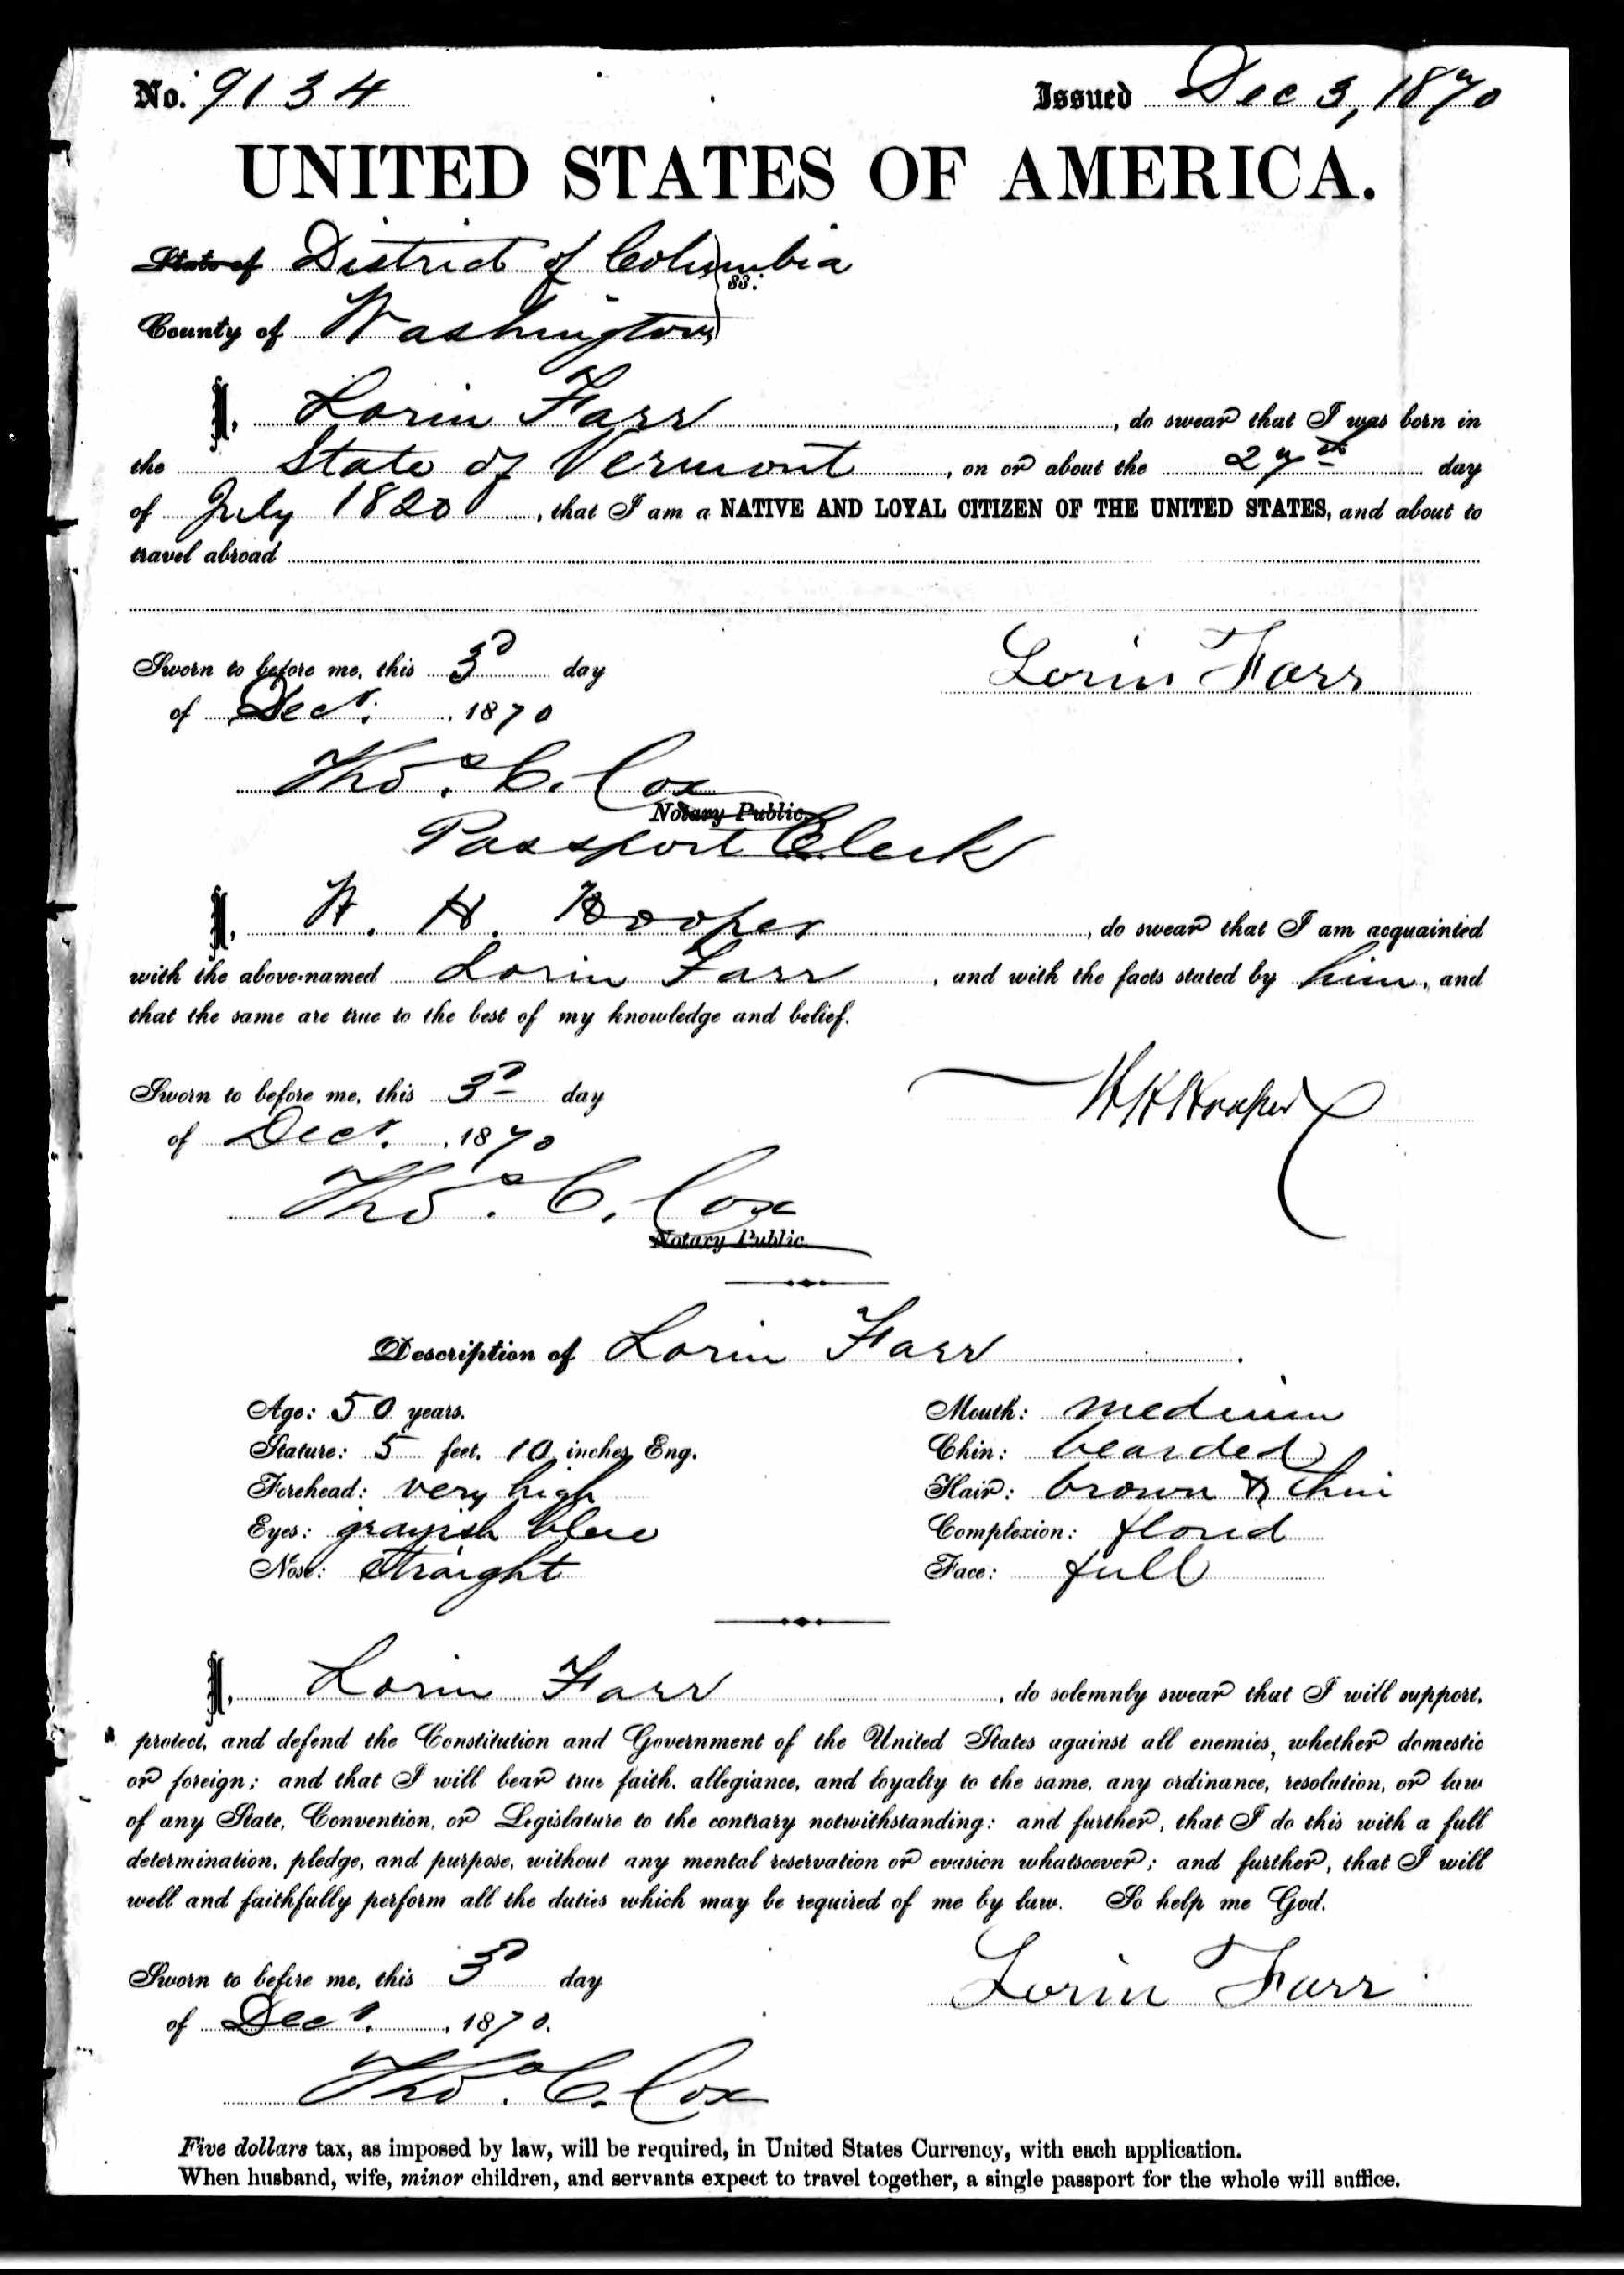 No. 9134 Issued Dec 3, 1870
UNITED STATES OF AMERICA.
State of District of Columbia
ss.
County of Washington
I, Lorin Farr, do swear that I was born in
the State of Vermont, on or about the 27th day
of July 1820, that I am a NATIVE AND LOYAL CITIZEN OF THE UNITED STATES, and about to
travel abroad
Sworn to before me, this 3d day
Lorin Farr
of Decr., 1870
Thos. C. Cox
Notary Public.
Passport Clerk
I, W. H. Hooper, do swear that I am acquainted
with the above-named Lorin Farr, and with the facts stated by him, and
that the same are true to the best of my knowledge and belief.
Sworn to before me, this 3d day
W H Hooper
of Decr., 1870
Thos. C. Cox
Notary Public.
Description of Lorin Farr.
Age: 50 years. Mouth: medium
Stature: 5 feet, 10 inches, Eng. Chin: bearded
Forehead: very high Hair: brown & thin
Eyes: grayish blue Complexion: florid
Nose: straight Face: full
I, Lorin Farr, do solemnly swear that I will support,
protect, and defend the Constitution and Government of the United States against all enemies, whether domestic
or foreign; and that I will bear true faith, allegiance, and loyalty to the same, any ordinance, resolution, or law
of any State, Convention, or Legislature to the contrary notwithstanding: and further, that I do this with a full
determination, pledge, and purpose, without any mental reservation or evasion whatsoever; and further, that I will
well and faithfully perform all the duties which may be required of me by law. So help me God.
Sworn to before me, this 3d day
Lorin Farr
of Decr., 1870.
Thos. C. Cox
Five dollars tax, as imposed by law, will be required, in United States Currency, with each application.
When husband, wife, minor children, and servants expect to travel together, a single passport for the whole will suffice.